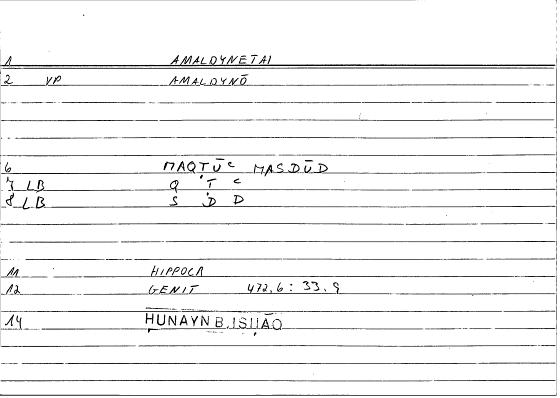 1 AMALDYNETAI
2 VP AMALDYNŌ
6 MAQṬŪC MASDŪD
7 LB Q Ṭ C
8 LB S D D
11 HIPPOCR
12 GENIT 472,6 : 33,9
14 ḤUNAYN B. ISḤĀQ